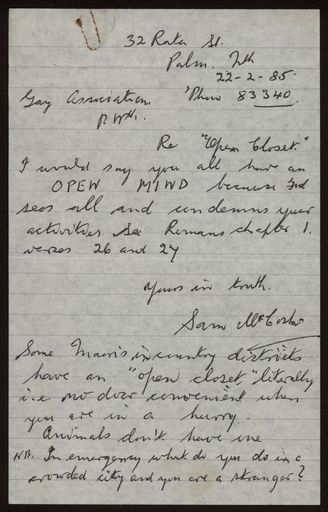 32 Rata St.
Palm. Nth
22-2-85
'Phone 83340.
Gay Association
P. Nth.
Re "Open Closet."
I would say you all have an
OPEN MIND because God
sees all and condemns your
activities See Romans chapter 1.
verses 26 and 27
Yours in truth.
Sam McCosker
Some Maoris in country districts
have an "open closet," literally
i.e no door convenient when
you are in a hurry.
Animals don't have one
NB. In emergency what do you do in a
crowded city and you are a stranger?